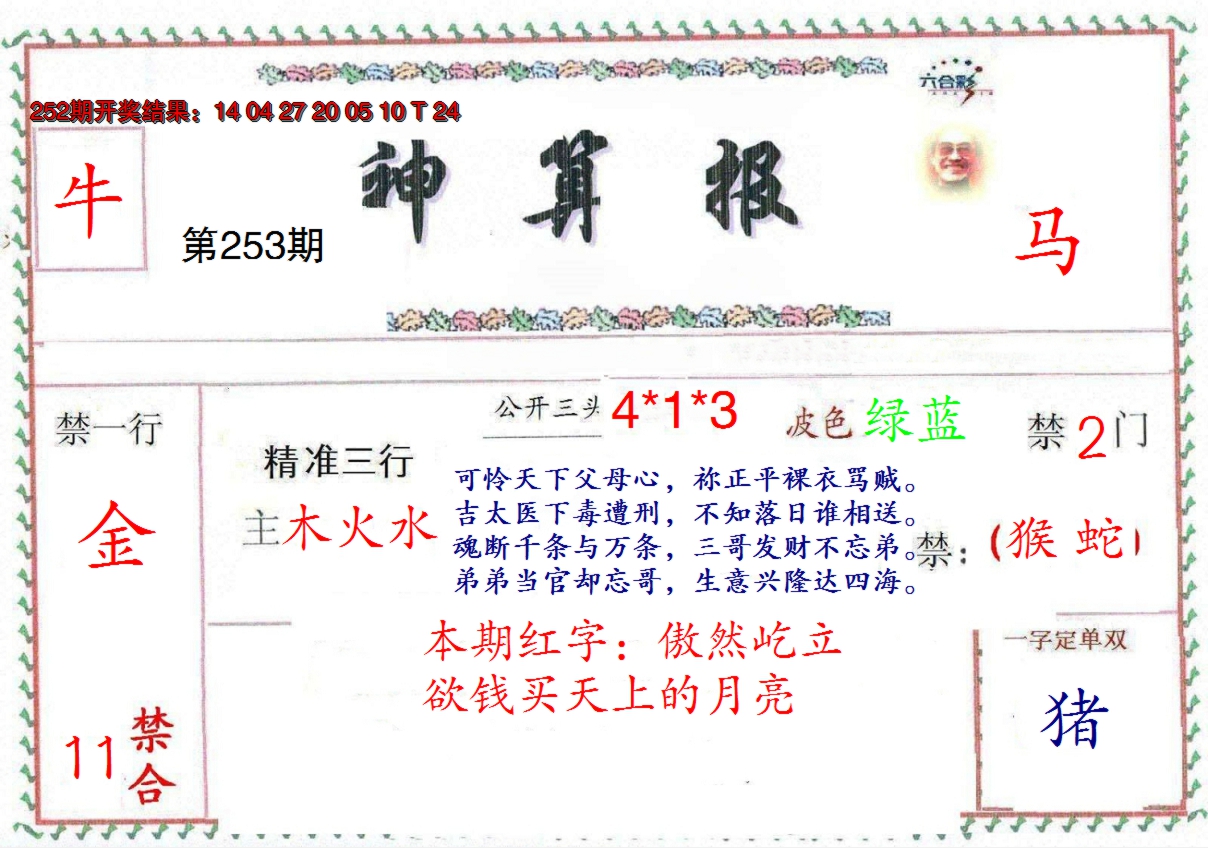 六合彩
252期开奖结果：14 04 27 20 05 10 T 24
牛
第253期
神算报
马
禁一行
金
11
禁合
精准三行
主木火水
公开三头 4*1*3
波色 绿蓝
禁2门
可怜天下父母心，祢正平裸衣骂贼。
吉太医下毒遭刑，不知落日谁相送。
魂断千条与万条，三哥发财不忘弟。
弟弟当官却忘哥，生意兴隆达四海。
禁：(猴 蛇)
本期红字：傲然屹立
欲钱买天上的月亮
一字定单双
猪